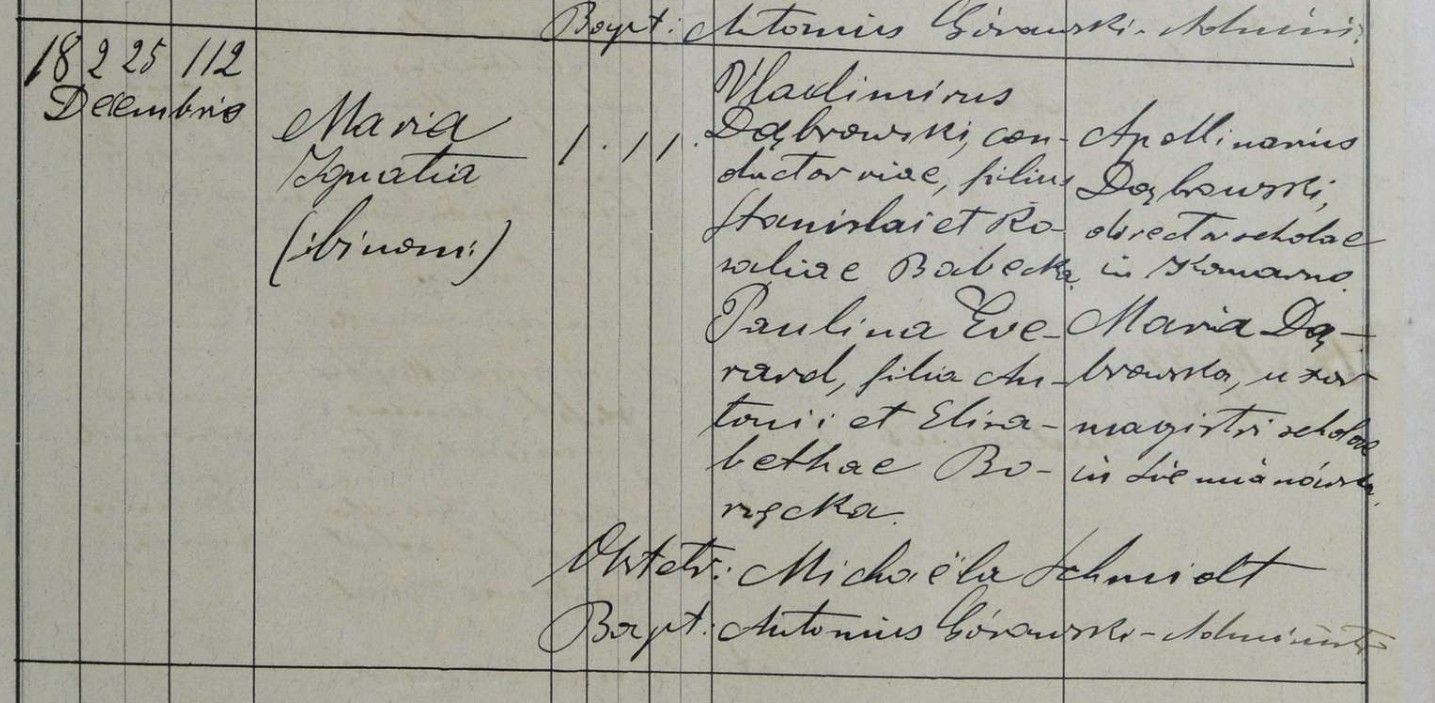 Bapt: Antonius Górawski - Admini
18 2 25 112
Decembris
Maria
Ignatia
(ibinom:)
1. 1 1.
Vladimirus
Dąbrowski, con-
ductor viae, filius
Stanislai et Ro-
saliae Babecka.
Paulina Eve-
rard, filia An-
tonii et Elisa-
bethae Bo-
rzęcka.
Apollinarius
Dąbrowski,
director scholae
in Komarno.
Maria Dą-
browska, uxor
magistri scholae
in Siemianówka.
Obstetr: Michaëla Schmidt
Bapt: Antonius Górawski - Administr